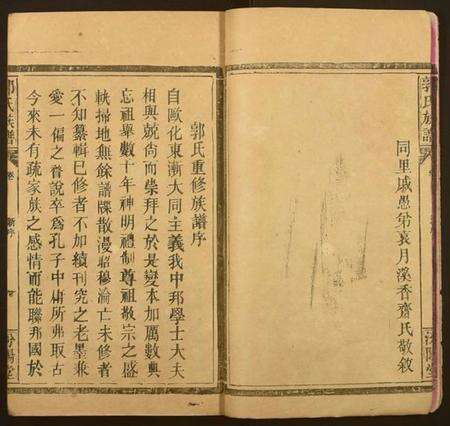 同里戚愚弟袁月溪香齋氏敬敘
郭氏族譜
汾陽堂
郭氏重修族譜序
自歐化東漸大同主義我中邦學士大夫
相與競尚而崇拜之於是變本加厲數典
忘祖舉數十年神明禮制尊祖敬宗之盛
軼掃地無餘譜牒散漫昭穆淪亡未修者
不知纂輯已修者不加續刊究之老墨兼
愛一偏之眷說卒爲孔子中庸所弗取古
今來未有疏家族之感情而能聯邦國於
郭氏族譜
新序
汾陽堂